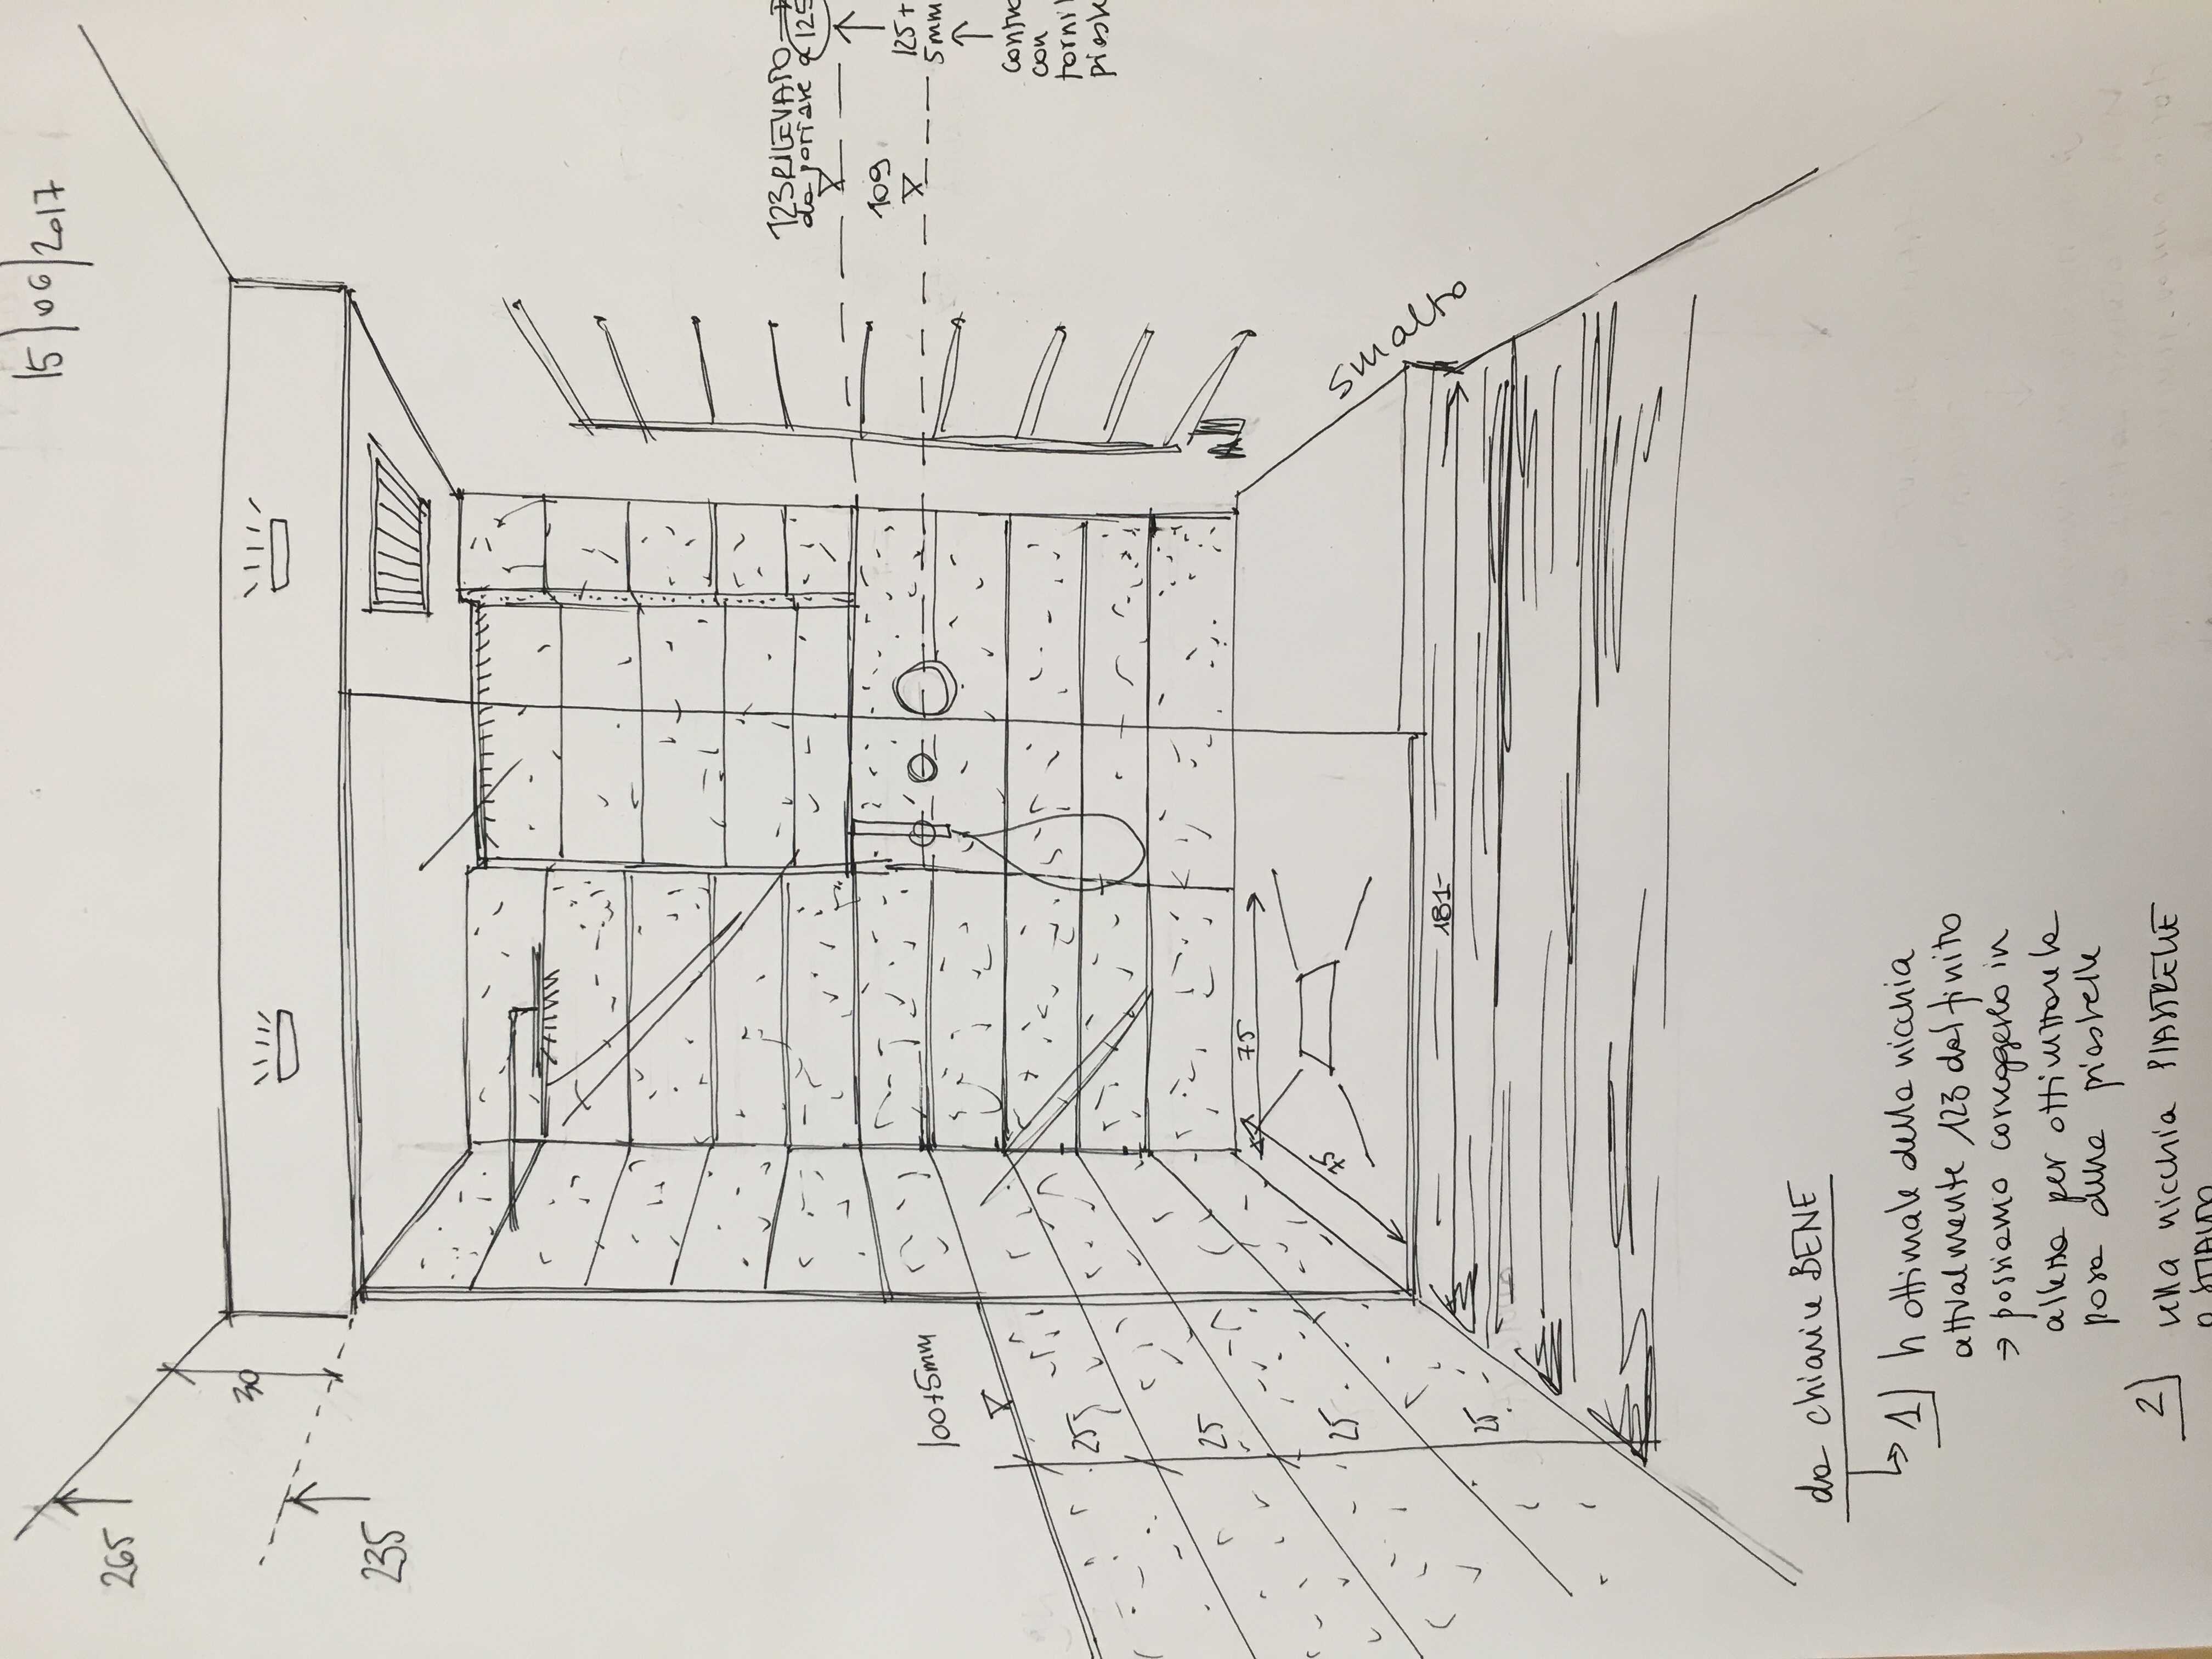 15/06/2017
265
30
235
123 RILEVATO
da portare a 125
109
125+
5mm
contro
con
forni
piast
100+5mm
25
25
25
25
75
75
181
Smalto
da chiarire BENE
1) h ottimale della nicchia
attualmente 123 dal finito
→ possiamo correggerlo in
altezza per ottimizzare la
posa delle piastrelle
2) nella nicchia PIASTRELLE
O SMALTO